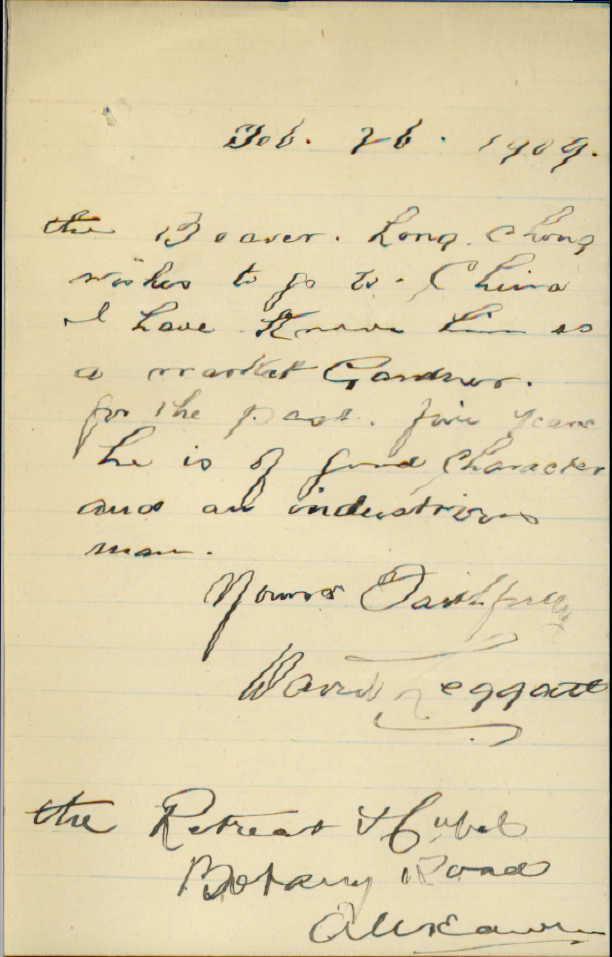 Feb. 26. 1909.
the Boaver. Long. Chong
wishes to go to China
I have Known him as
a market Gardner.
for the past. five years
he is of good Character
and an industrious
man.
Yours Faithfully
David Leggatt
the Retreat Hotel
Botany Road
Alexandria